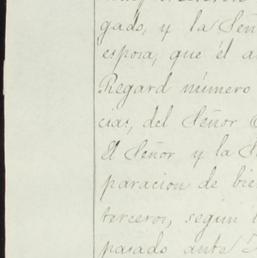 gado, y la Señ
esposa, que él a
Regard número
cias, del Señor
El Señor y la S
paracion de bie
terceros, segun
pasado ante